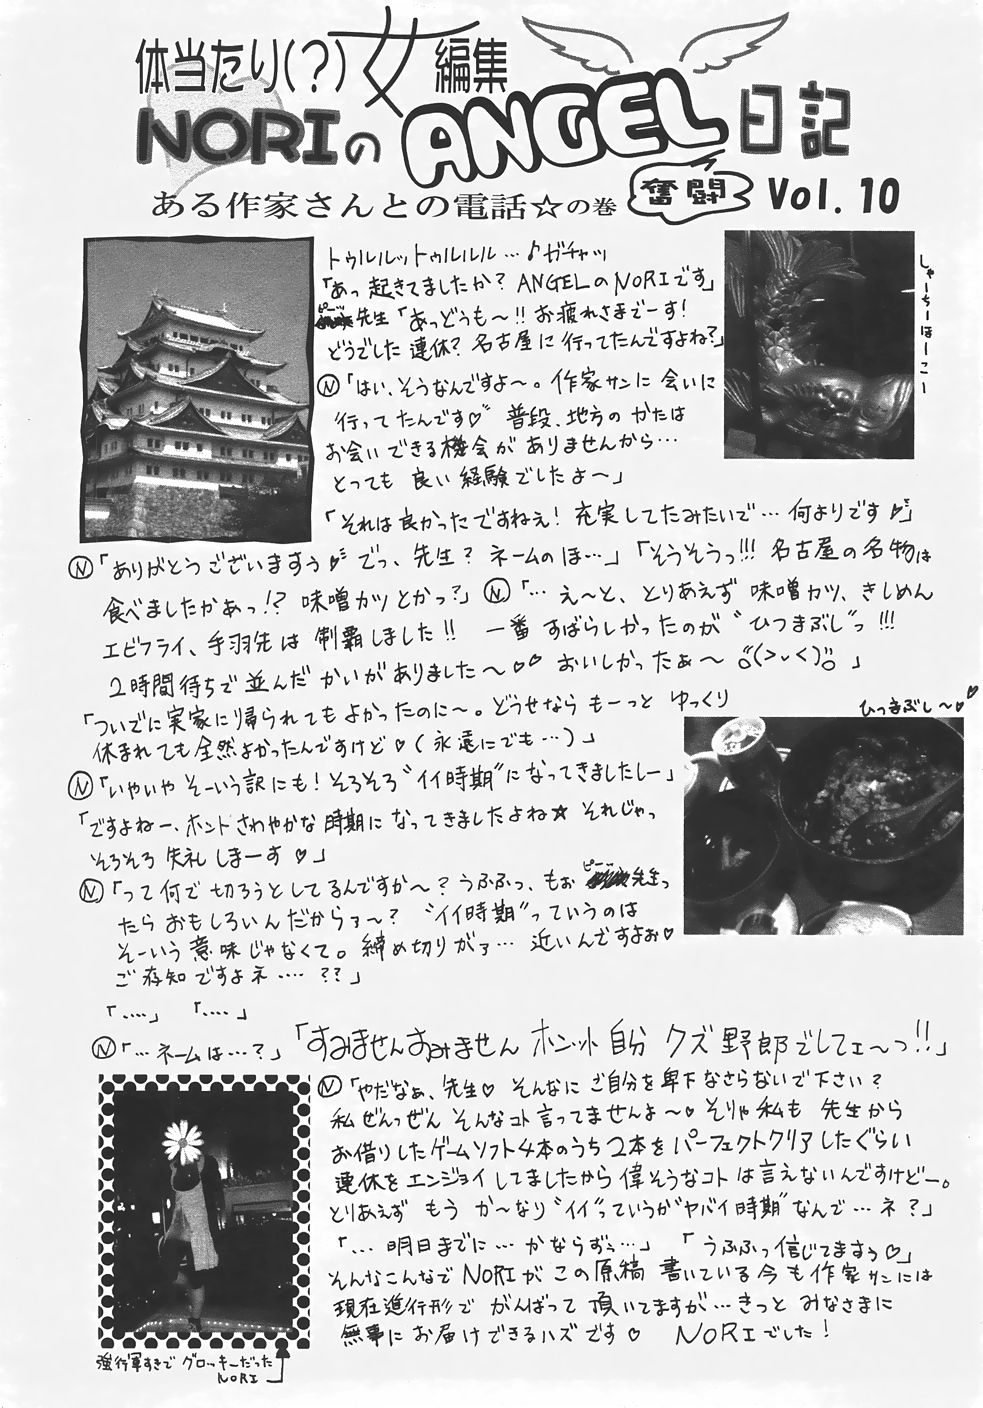 体当たり(?)女編集
NORIのANGEL日記
奮闘
ある作家さんとの電話☆の巻
Vol. 10
トゥルルットゥルルル…♪ガチャッ
「あっ起きてましたか? ANGELのNORIです」
ピーッ
先生「あっどうも〜!! お疲れさまでーす!
どうでした連休? 名古屋に行ってたんですよね?」
しゃーちーほーこー
Ⓝ「はい、そうなんですよ〜。作家サンに会いに
行ってたんです♡ 普段、地方のかたは
お会いできる機会がありませんから…
とっても良い経験でしたよ〜」
「それは良かったですねぇ! 充実してたみたいで…何よりです♡」
Ⓝ「ありがとうございますぅ♡でっ、先生? ネームのほ…」「そうそうっ!!! 名古屋の名物は
食べましたかあっ!? 味噌カツとかっ?」Ⓝ「…え〜と、とりあえず味噌カツ、きしめん
エビフライ、手羽先は制覇しました!! 一番すばらしかったのが〝ひつまぶし〟っ!!!
2時間待ちで並んだかいがありました〜♡♡ おいしかったぁ〜 (>◡<) 」
「ついでに実家に帰られてもよかったのに〜。どうせならもーっとゆっくり
休まれても全然よかったんですけど♡(永遠にでも…)」
ひつまぶし〜♡♡
Ⓝ「いやいやそーいう訳にも! そろそろ〝イイ時期〟になってきましたしー」
「ですよねー、ホントさわやかな時期になってきましたよね★ それじゃっ
そろそろ失礼しまーす♡」
Ⓝ「って何で切ろうとしてるんですか〜? うふふっ、もぉ
ピーッ
先生っ
たらおもしろいんだからァ〜? 〝イイ時期〟っていうのは
そーいう意味じゃなくて。締め切りがァ…近いんですよぉ♡
ご存知ですよネ‥‥??」
「‥‥」 「‥‥」
Ⓝ「…ネームは…?」「すみませんすみませんホント自分クズ野郎でしてェ〜っ!!」
Ⓝ「やだなぁ、先生♡ そんなにご自分を卑下なさらないで下さい?
私ぜんっぜんそんなコト言ってませんよ〜♡そりゃ私も先生から
お借りしたゲームソフト4本のうち2本をパーフェクトクリアしたぐらい
連休をエンジョイしてましたから偉そうなコトは言えないんですけどー。
とりあえずもうか〜なり〝イイ〟っていうか〝ヤバイ時期〟なんで…ネ?」
「…明日までに…かならずぅ…」 「うふふっ信じてますぅ♡」
そんなこんなでNORIがこの原稿書いている今も作家サンには
現在進行形でがんばって頂いてますが…きっとみなさまに
無事にお届けできるハズです♡ NORIでした!
強行軍すぎでグロッキーだった
NORI